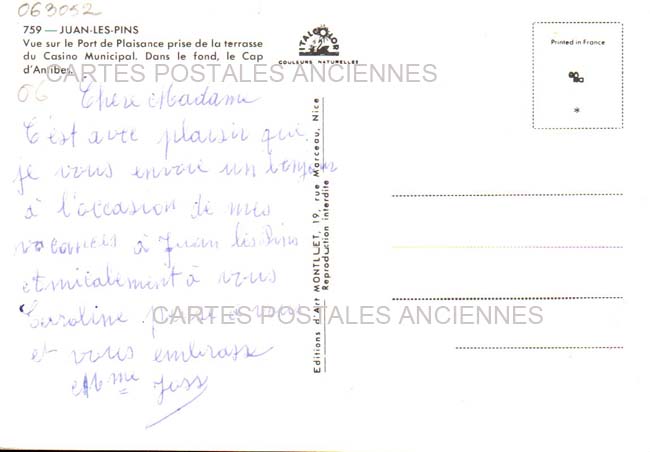 063052
759 — JUAN-LES-PINS
Vue sur le Port de Plaisance prise de la terrasse
du Casino Municipal. Dans le fond, le Cap
d'Antibes.
CARTES POSTALES ANCIENNES
06
Chère Madame
C'est avec plaisir que
je vous envoie un bonjour
à l'occasion de mes
vacances à Juan les Pins
et amicalement à vous
Caroline pense à vous
CARTES POSTALES ANCIENNES
et vous embrasse
Mme
ITALCOLOR
COULEURS NATURELLES
Editions d'Art MONTLUET, 19, rue Marceau, Nice
Reproduction interdite
Printed in France
*